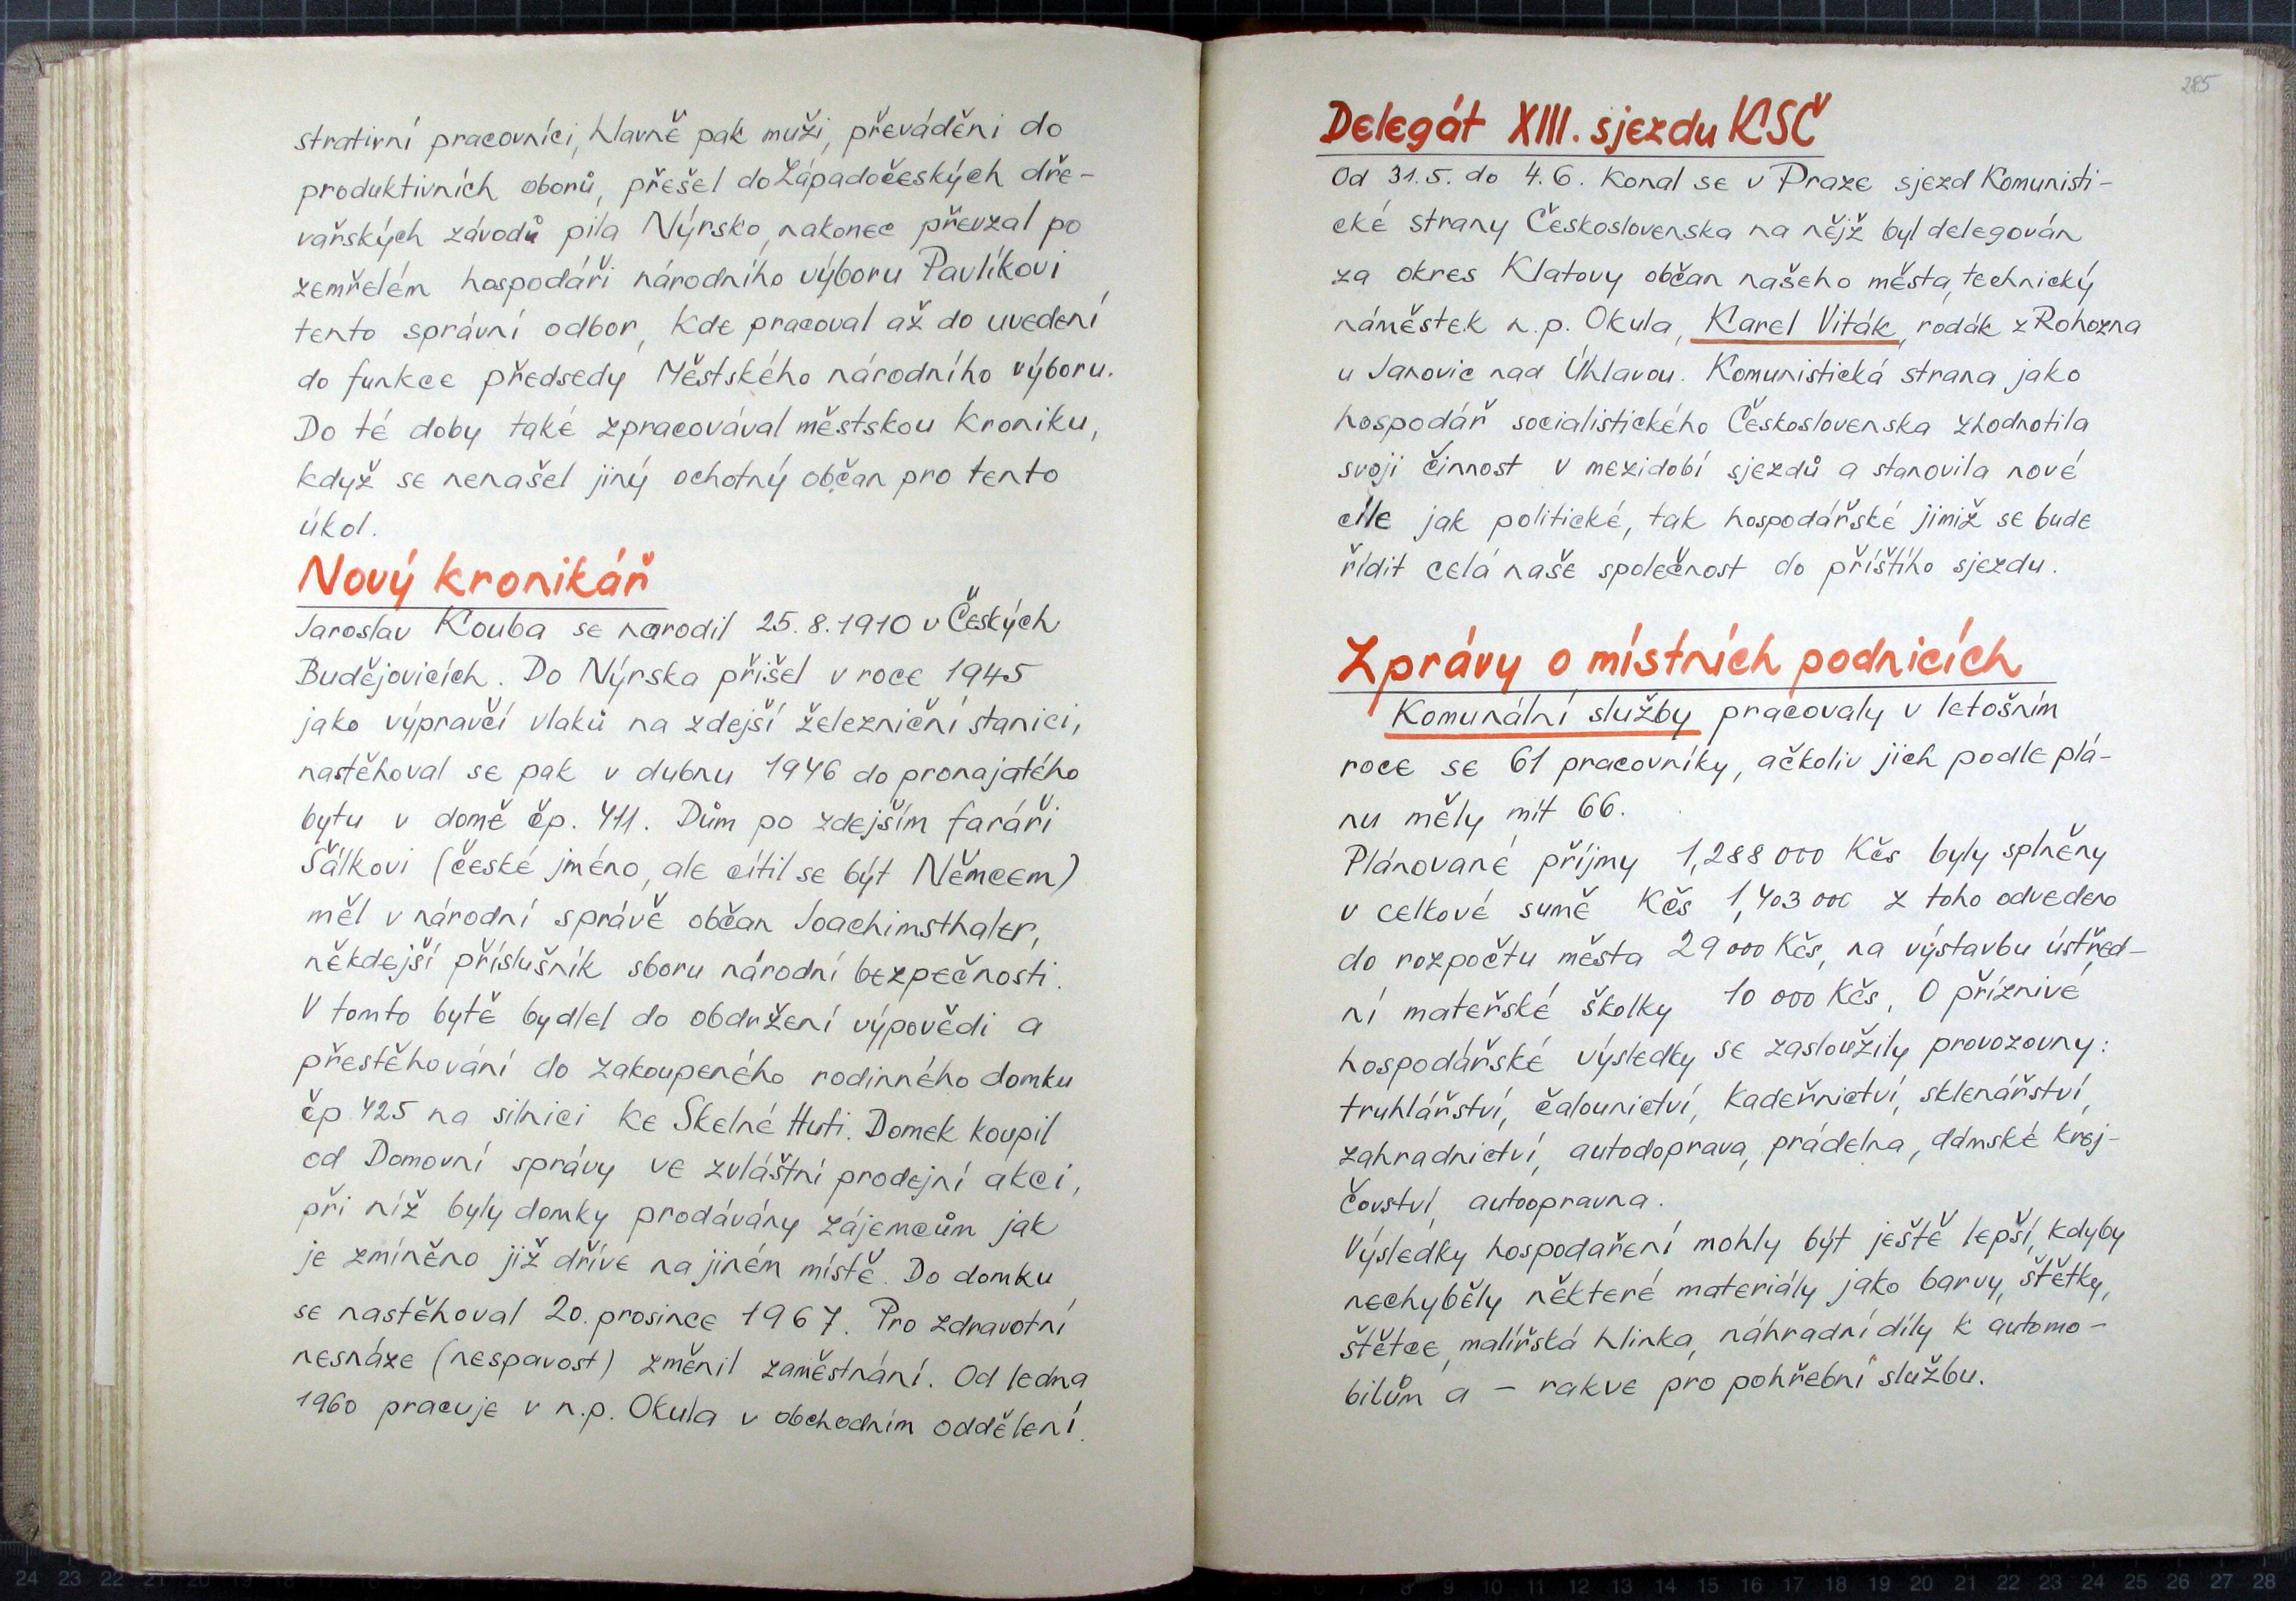 strativní pracovníci, hlavně pak muži, převáděni do
produktivních oborů, přešel do Západočeských dře-
vařských závodů pila Nýrsko, nakonec převzal po
zemřelém hospodáři národního výboru Pavlíkovi
tento správní odbor, kde pracoval až do uvedení
do funkce předsedy Městského národního výboru.
Do té doby také zpracovával městskou kroniku,
když se nenašel jiný ochotný občan pro tento
úkol.
Nový kronikář
Jaroslav Kouba se narodil 25.8.1910 v Českých
Budějovicích. Do Nýrska přišel v roce 1945
jako výpravčí vlaků na zdejší železniční stanici,
nastěhoval se pak v dubnu 1946 do pronajatého
bytu v domě čp. 411. Dům po zdejším faráři
Šálkovi (české jméno, ale cítil se být Němcem)
měl v národní správě občan Joachimsthaler,
někdejší příslušník sboru národní bezpečnosti.
V tomto bytě bydlel do obdržení výpovědi a
přestěhování do zakoupeného rodinného domku
čp. 425 na silnici ke Skelné Huti. Domek koupil
od Domovní správy ve zvláštní prodejní akci,
při níž byly domky prodávány zájemcům jak
je zmíněno již dříve na jiném místě. Do domku
se nastěhoval 20. prosince 1967. Pro zdravotní
nesnáze (nespavost) změnil zaměstnání. Od ledna
1960 pracuje v n.p. Okula v obchodním oddělení.
285
Delegát XIII. sjezdu KSČ
Od 31.5. do 4.6. konal se v Praze sjezd Komunisti-
cké strany Československa na nějž byl delegován
za okres Klatovy občan našeho města, technický
náměstek n.p. Okula, Karel Viták, rodák z Rohozna
u Janovic nad Úhlavou. Komunistická strana jako
hospodář socialistického Československa zhodnotila
svoji činnost v mezidobí sjezdů a stanovila nové
cíle jak politické, tak hospodářské jimiž se bude
řídit celá naše společnost do příštího sjezdu.
Zprávy o místních podnicích
Komunální služby pracovaly v letošním
roce se 61 pracovníky, ačkoliv jich podle plá-
nu měly mít 66.
Plánované příjmy 1,288 000 Kčs byly splněny
v celkové sumě Kčs 1,403 000 z toho odvedeno
do rozpočtu města 29 000 Kčs, na výstavbu ústřed-
ní mateřské školky 10 000 Kčs. O příznivé
hospodářské výsledky se zasloužily provozovny:
truhlářství, čalounictví, kadeřnictví, sklenářství,
zahradnictví, autodoprava, prádelna, dámské krej-
čovství, autoopravna.
Výsledky hospodaření mohly být ještě lepší, kdyby
nechyběly některé materiály jako barvy, štětky,
štětce, malířská hlinka, náhradní díly k automo-
bilům a - rakve pro pohřební službu.
24 23 22 21 20
8 9 10 11 12 13 14 15 16 17 18 19 20 21 22 23 24 25 26 27 28